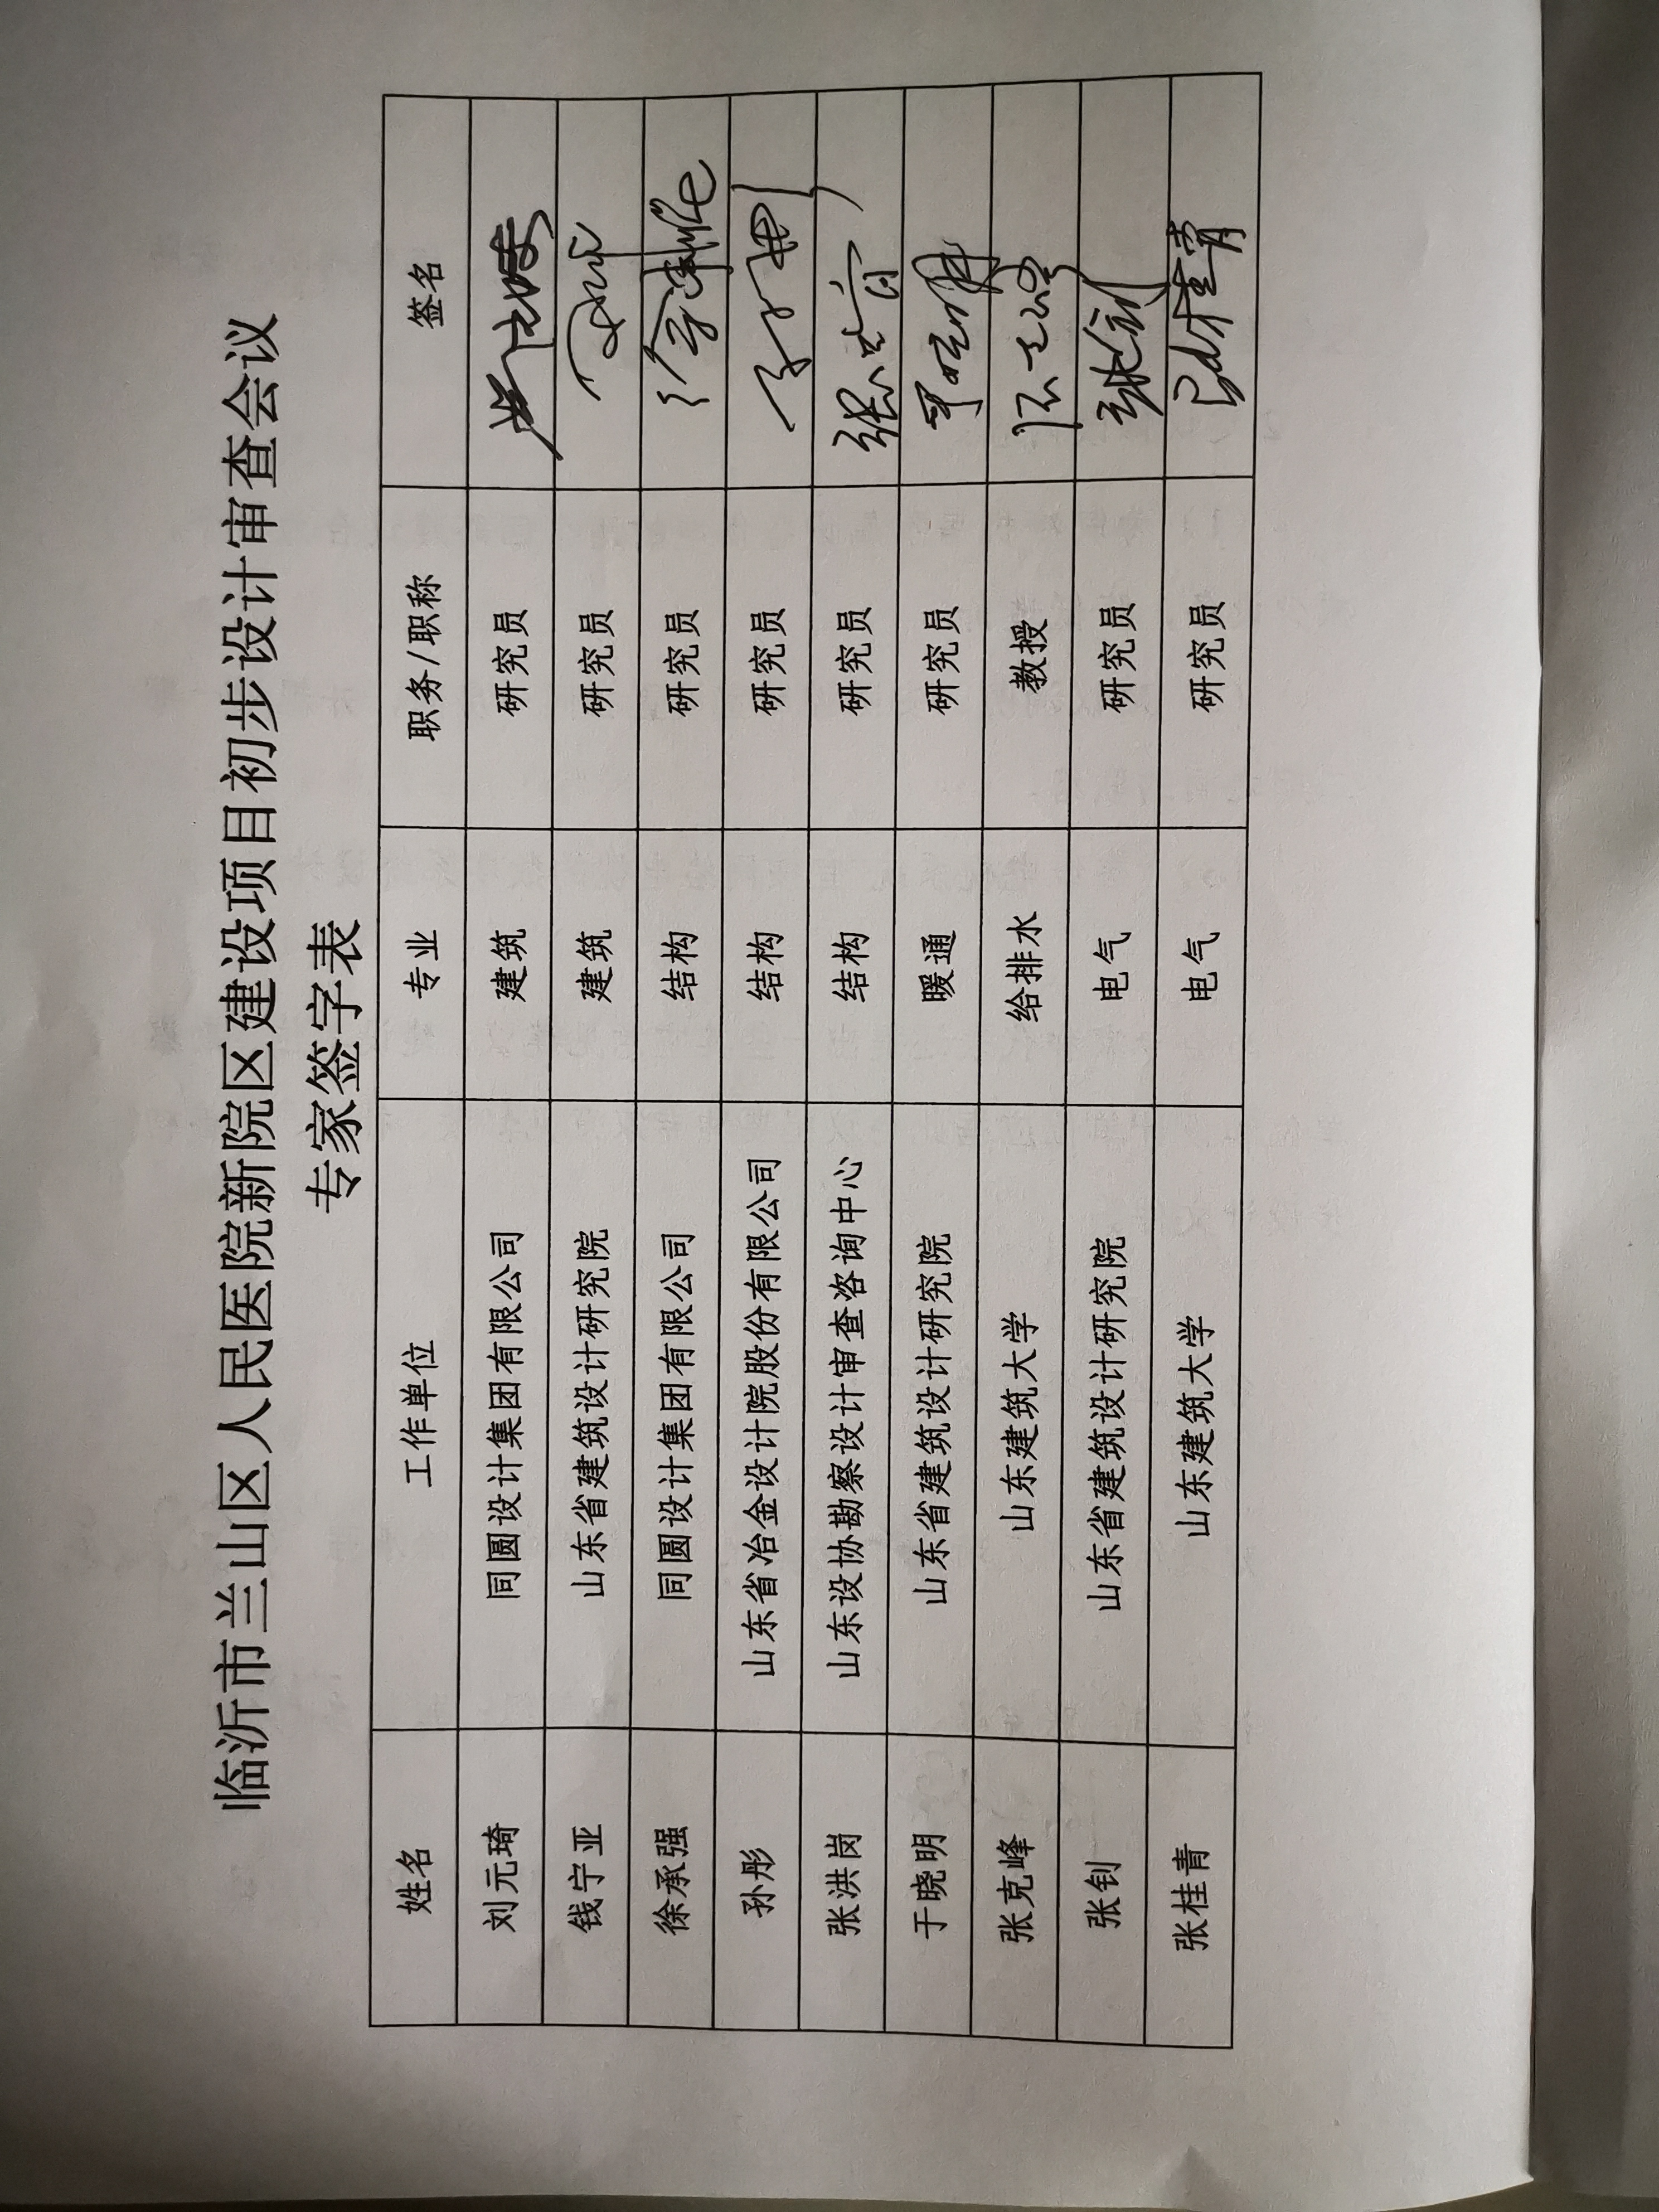 临沂市兰山区人民医院新院区建设项目初步设计审查会议
专家签字表
姓名 工作单位 专业 职务/职称 签名
刘元琦 同圆设计集团有限公司 建筑 研究员
钱宁亚 山东省建筑设计研究院 建筑 研究员
徐承强 同圆设计集团有限公司 结构 研究员
孙彤 山东省冶金设计院股份有限公司 结构 研究员
张洪岗 山东设协勘察设计审查咨询中心 结构 研究员
于晓明 山东省建筑设计研究院 暖通 研究员 于晓明
张克峰 山东建筑大学 给排水 教授
张钊 山东省建筑设计研究院 电气 研究员 张钊
张桂青 山东建筑大学 电气 研究员 张桂青